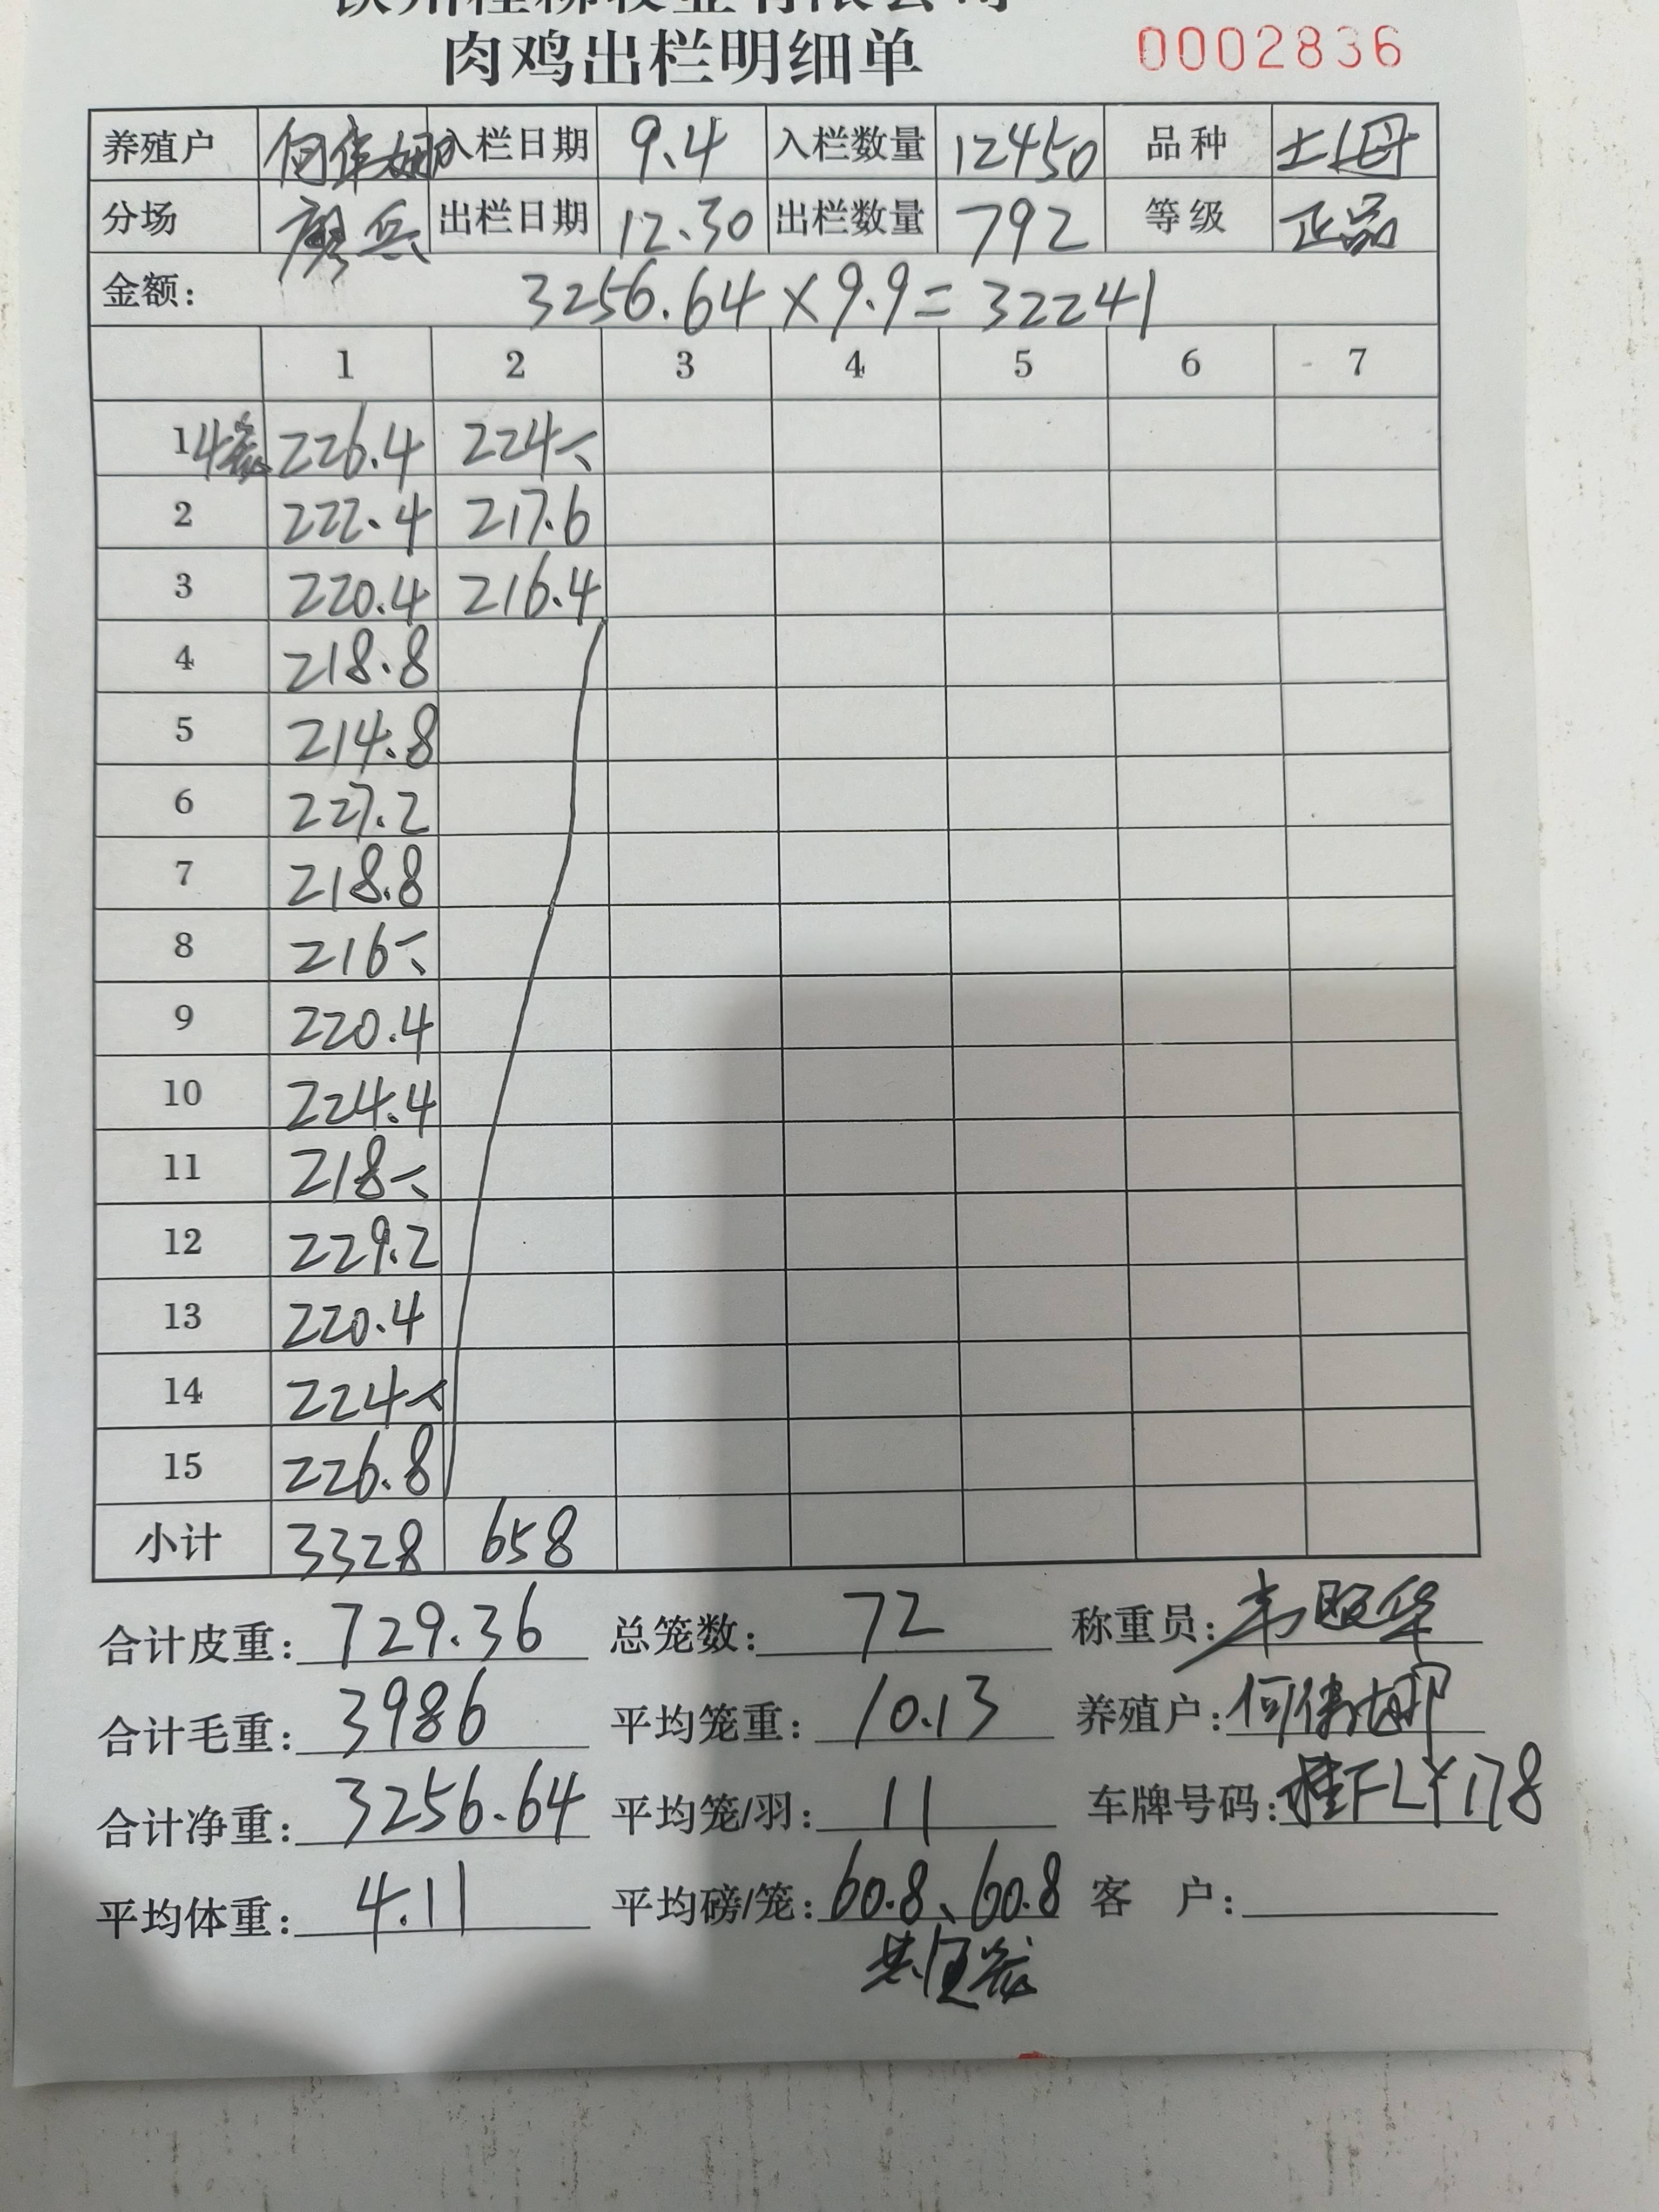 肉鸡出栏明细单 0002836
养殖户 何伟娜 入栏日期 9.4 入栏数量 12450 品种 土母
分场 廖兵 出栏日期 12.30 出栏数量 792 等级 正品
金额: 3256.64×9.9=32241
1 2 3 4 5 6 7
1 4笼 226.4 224
2 222.4 217.6
3 220.4 216.4
4 218.8
5 214.8
6 227.2
7 218.8
8 216
9 220.4
10 224.4
11 218
12 229.2
13 220.4
14 224
15 226.8
小计 3328 658
合计皮重: 729.36 总笼数: 72 称重员:
合计毛重: 3986 平均笼重: 10.13 养殖户: 何伟娜
合计净重: 3256.64 平均笼/羽: 11 车牌号码: 桂FLY178
平均体重: 4.11 平均磅/笼: 60.8、60.8 客户: